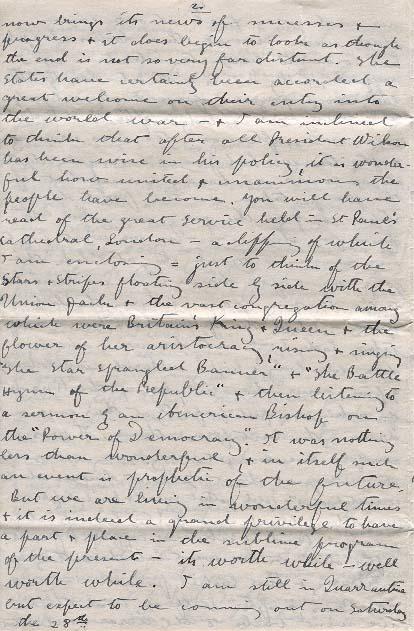 2.
now brings its news of successes &
progress & it does begin to look as though
the end is not so very far distant. The
States have certainly been accorded a
great welcome on their entry into
the world war — & I am inclined
to think that after all President Wilson
has been wise in his policy it is wonder-
ful how united & unanimous the
people have become. You will have
read of the great Service held — St Paul's
Cathedral, London — a clipping of which
I am enclosing = just to think of the
Stars & Stripes floating side by side with the
Union Jack & the vast congregation among
which were Britain's King & Queen & the
flower of her aristocracy, rising & singing
"The Star Spangled Banner" & "The Battle
Hymn of the Republic" & then listening to
a sermon by an American Bishop on
the "Power of Democracy". It was nothing
less than wonderful, & in itself such
an event is prophetic of the future.
But we are living in wonderful times
& it is indeed a grand privilege to have
a part & place in the sublime program
of the present — its worth while — well
worth while. I am still in Quarrantine
but expect to be coming out on Saturday
the 28th